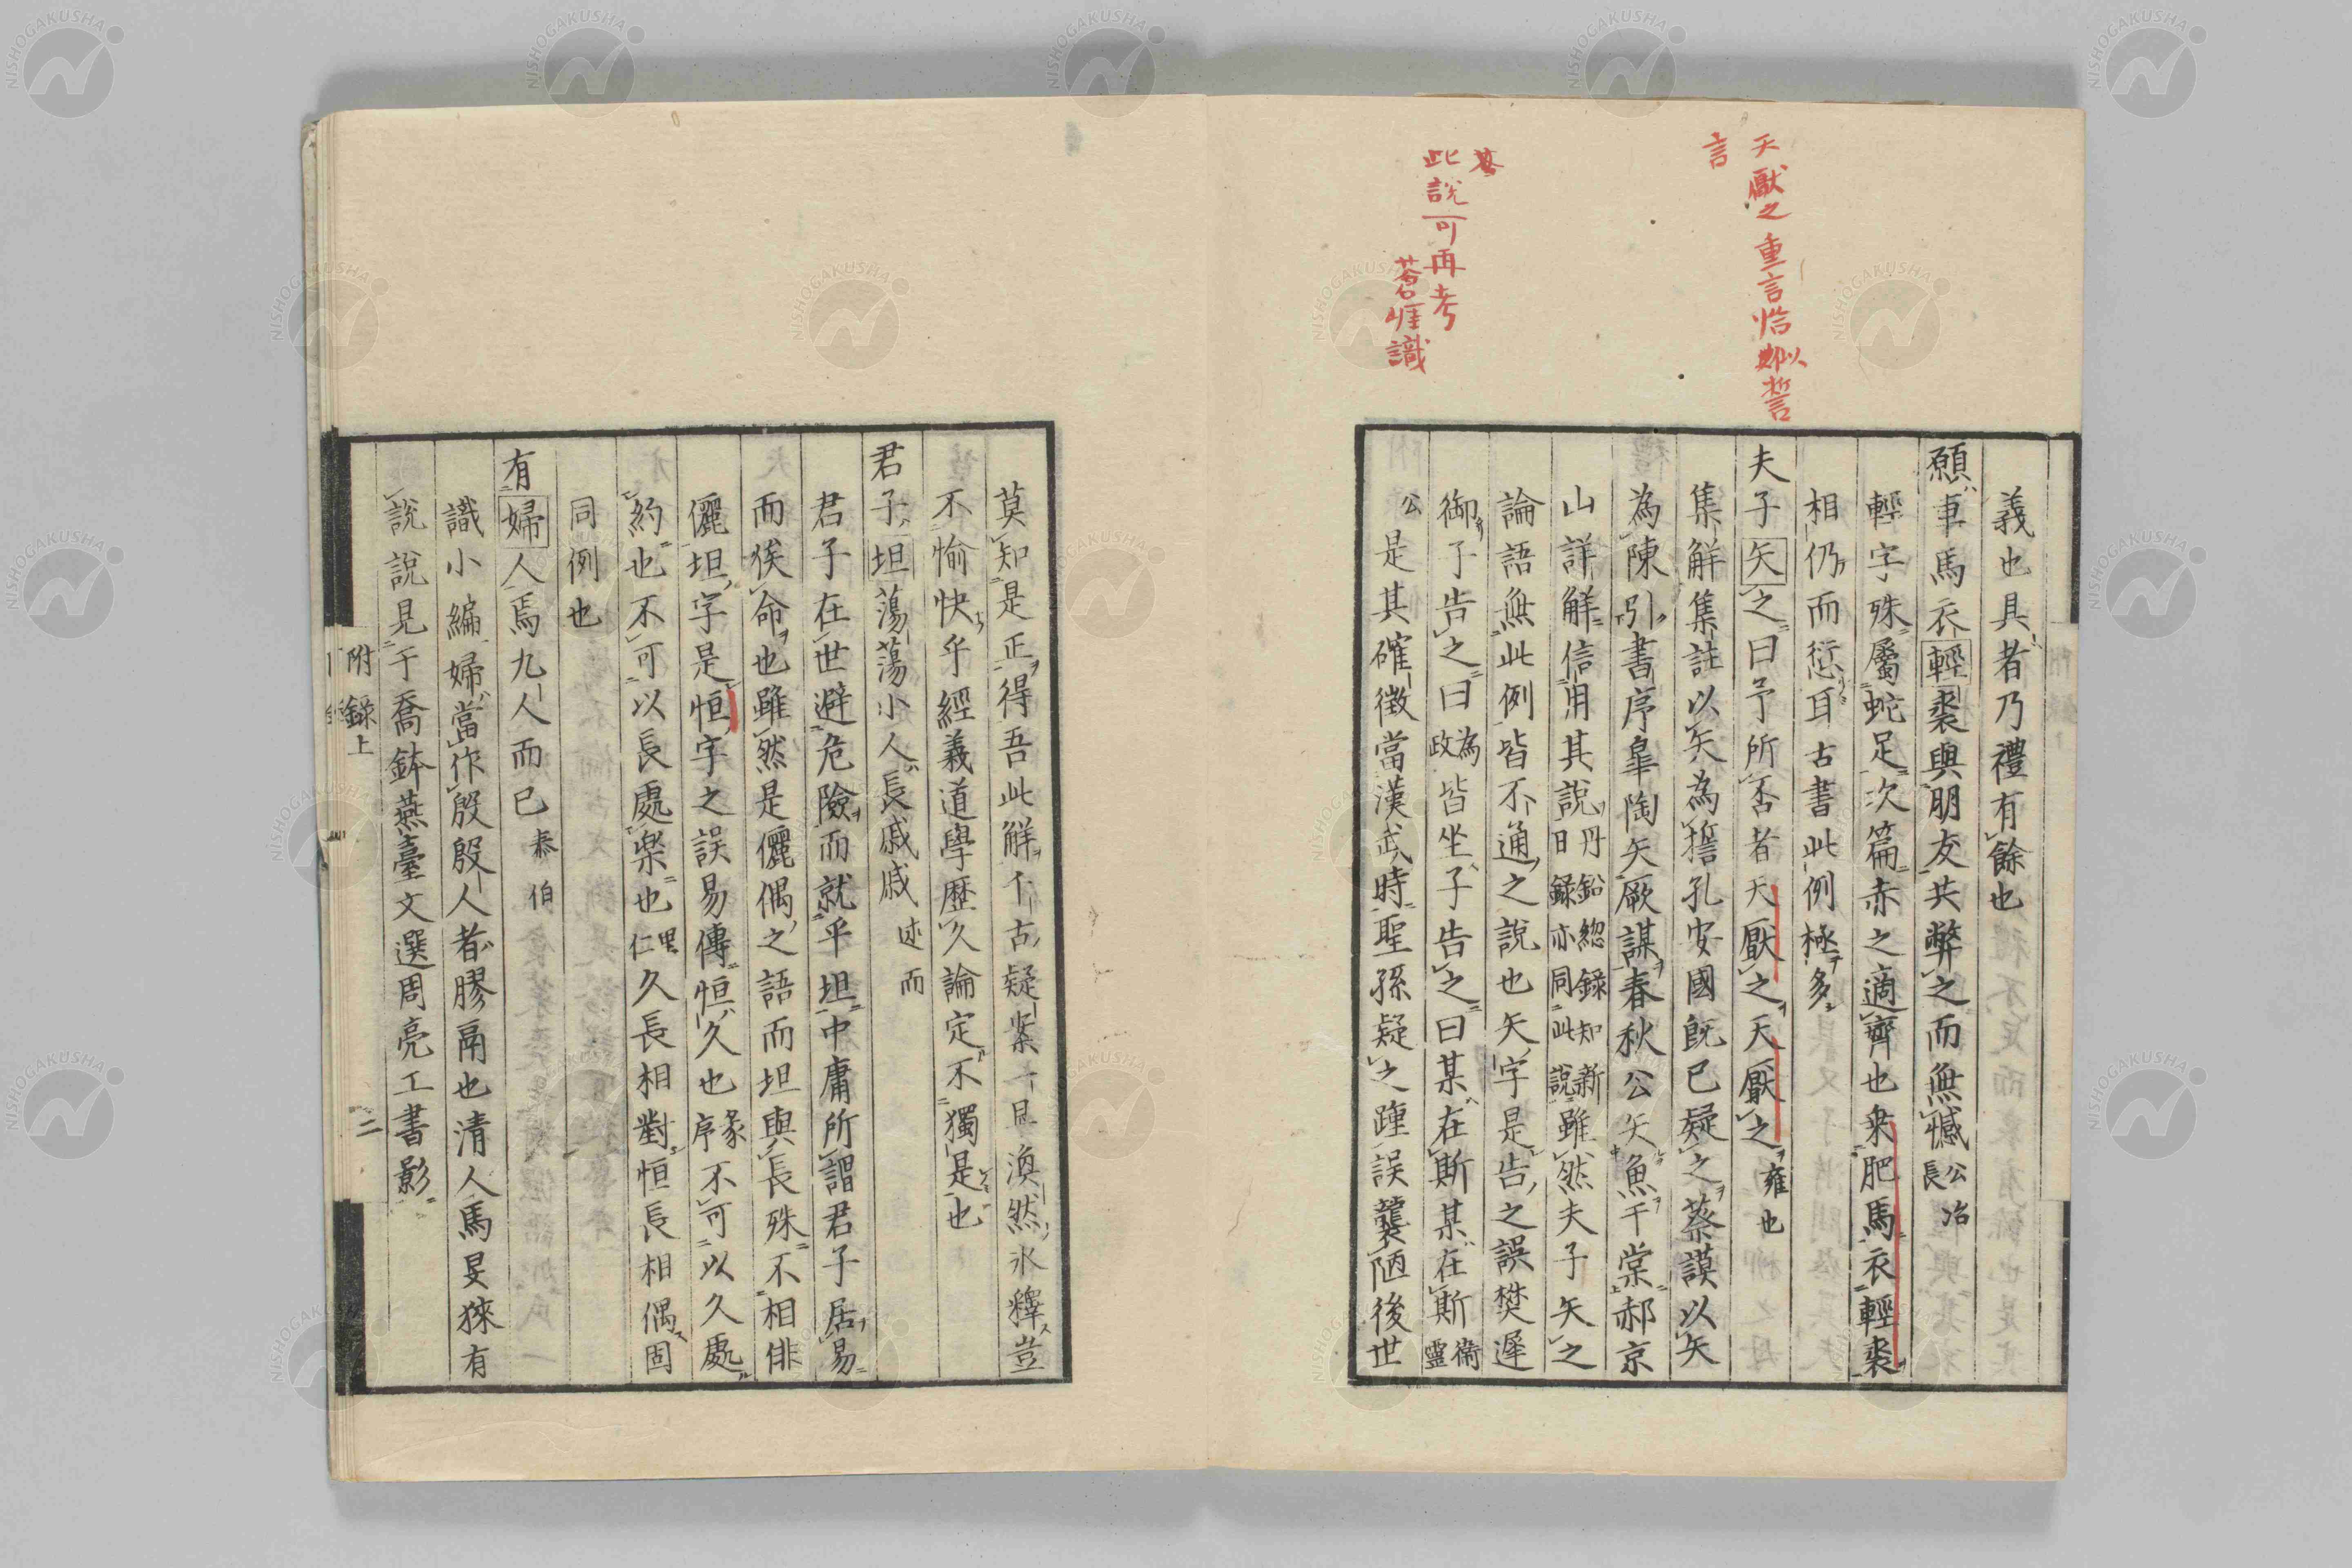 天厭之重言恰似誓
言
此說可再考
蒼崖識
義也具者乃禮有餘也
願車馬衣輕裘與朋友共弊之而無憾公冶長
輕字殊屬蛇足次篇赤之適齊也乗肥馬衣輕裘
相仍而愆耳古書此例極多
夫子矢之曰予所否者天厭之天厭之雍也
集解集註以矢為誓孔安國旣已疑之蔡謨以矢
為陳引書序皐陶矢厥謀春秋公矢魚于棠郝京
山詳解信用其說丹鉛緫録知新日録亦同此說雖然夫子矢之
論語無此例皆不通之說也矢字是告之誤樊遲
御子告之曰為政皆坐子告之曰某在斯某在斯衛靈
公是其確徵當漢武時聖孫疑之踵誤襲陋後世
莫知是正得吾此解千古疑案一旦渙然氷釋豈
不愉快乎經義道學歷久論定不獨是也
君子坦蕩蕩小人長戚戚述而
君子在世避危險而就平坦中庸所謂君子居易
而俟命也雖然是儷偶之語而坦與長殊不相俳
儷坦字是恒字之誤易傳恒久也序彖不可以久處
約也不可以長處楽也里仁久長相對恒長相偶固
同例也
有婦人焉九人而已泰伯
識小編婦當作殷殷人者膠鬲也清人馬旻徠有
說說見于喬鉢燕臺文選周亮工書影
附録上
二